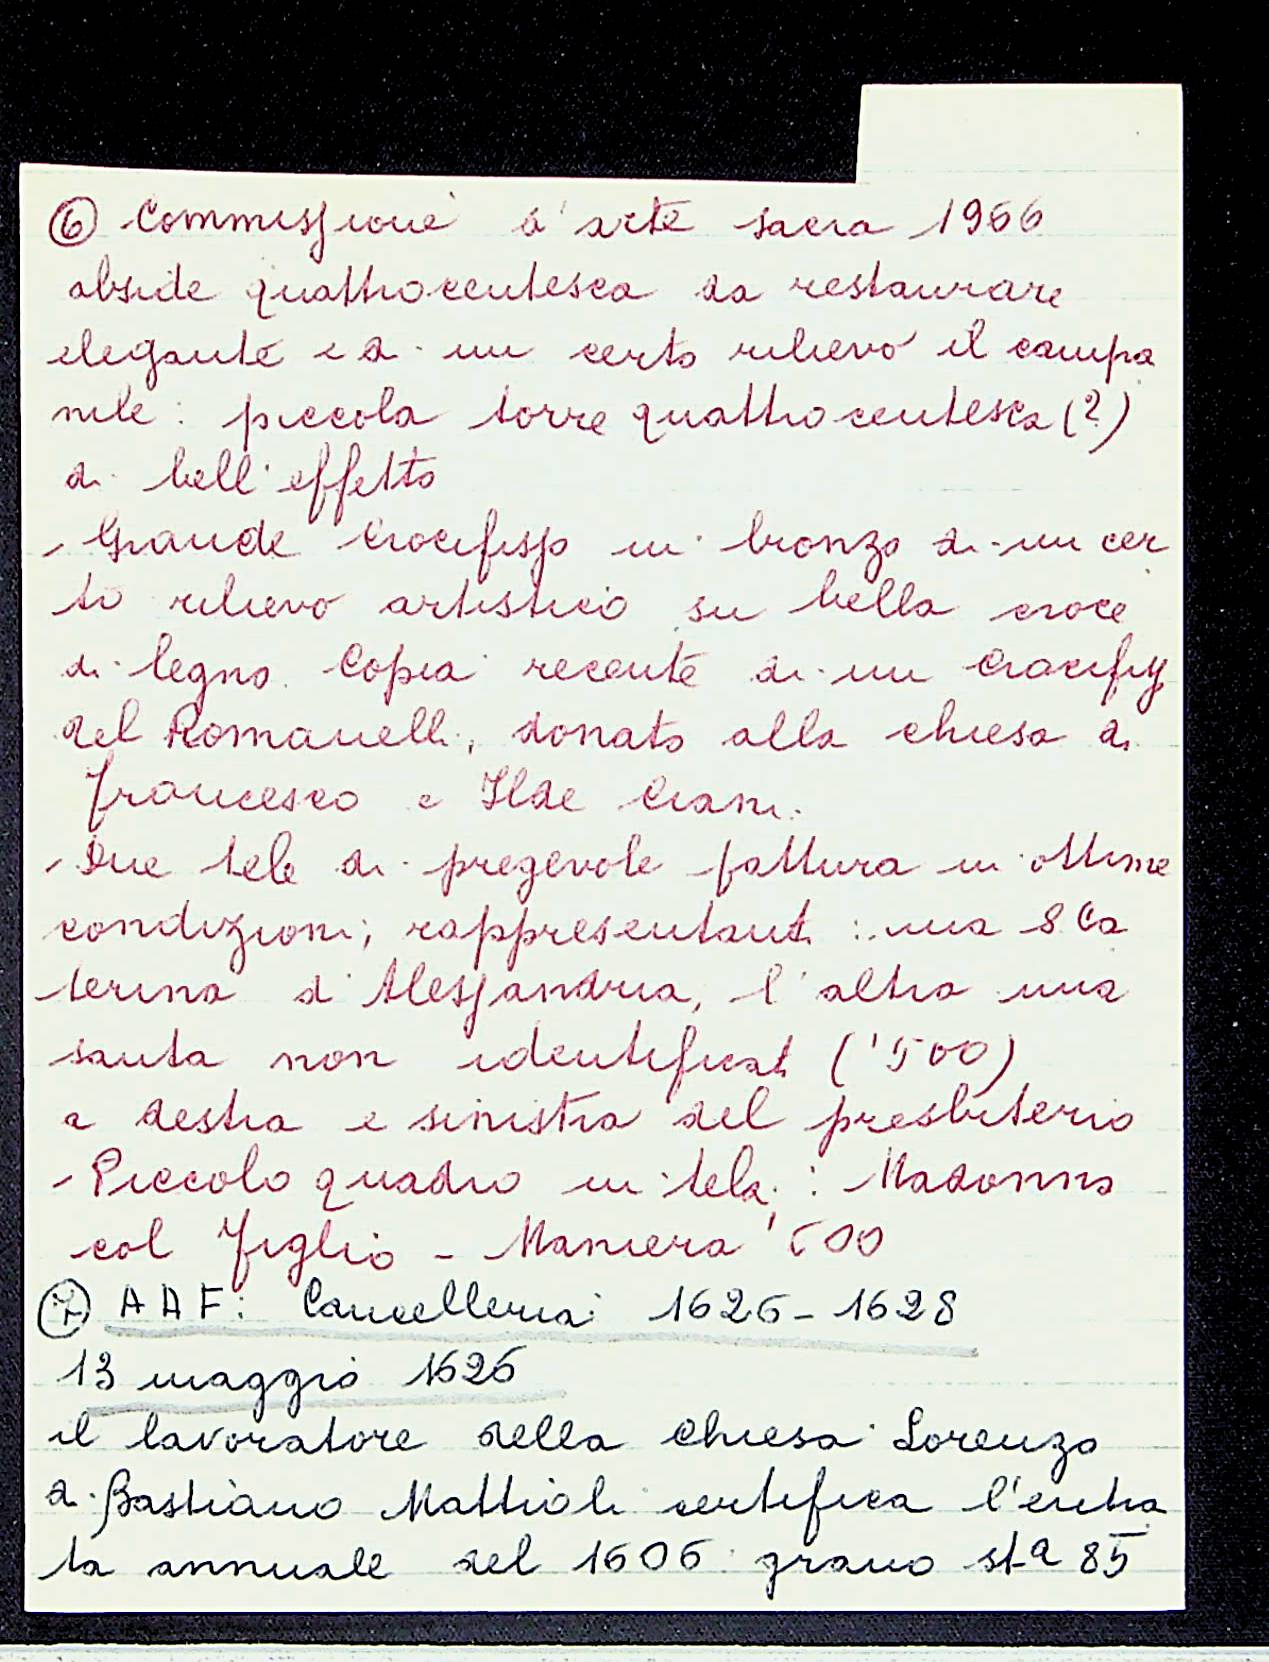 ⑥ Commissione d'arte sacra 1966
abside quattrocentesca da restaurare
elegante e di un certo rilievo il campa
nile: piccola torre quattrocentesca (?)
di bell'effetto
- Grande Crocifisso in bronzo di un cer
to rilievo artistico su bella croce
di legno. Copia recente di un Crocifisso
del Romanelli, donato alla chiesa di
Francesco e Ilde Ciani.
- Due tele di pregevole fattura in ottime
condizioni; rappresentanti: una S. Ca
terina d'Alessandria, l'altra una
santa non identificat. ('500)
a destra e sinistra del presbiterio
- Piccolo quadro in tela: Madonna
col Figlio - Maniera '600
⑦ AAF: Cancelleria: 1626-1628
13 maggio 1626
il lavoratore della chiesa Lorenzo
di Bastiano Mattioli certifica l'entra
ta annuale del 1606: grano st.a 85